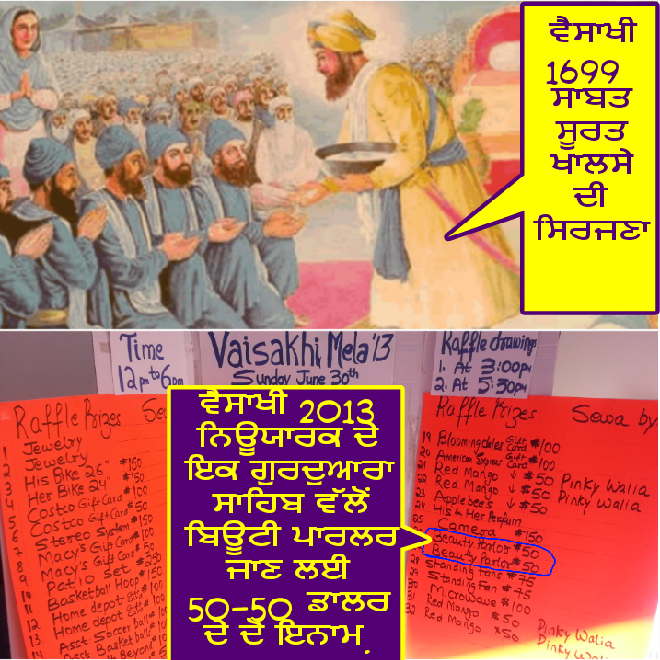 ਵੈਸਾਖੀ
1699
ਸਾਬਤ
ਸੂਰਤ
ਖਾਲਸੇ
ਦੀ
ਸਿਰਜਣਾ
Time
12pm to 6pm
Vaisakhi Mela '13
Sunday June 30th
Raffle drawings
1. At 3:00pm
2. At 5:30pm
Raffle Prizes Sewa
1 Jewelry
2 Jewelry
3 His Bike 26" $150
4 Her Bike 24" $150
5 Costco Gift Card $100
6 Costco Gift Card $50
7 Stereo System $150
8 Macy's Gift Card $100
9 Macy's Gift Card $50
10 Patio set $250
11 Basketball Hoop $150
12 Home depot Gift $100
13 Home depot Gift
14 Asst Soccer Ball
Asst Basketball
ਵੈਸਾਖੀ 2013
ਨਿਊਯਾਰਕ ਦੇ
ਇਕ ਗੁਰਦੁਆਰਾ
ਸਾਹਿਬ ਵੱਲੋਂ
ਬਿਊਟੀ ਪਾਰਲਰ
ਜਾਣ ਲਈ
50-50 ਡਾਲਰ
ਦੇ ਦੋ ਇਨਾਮ.
Raffle Prizes Sewa by:
19 Bloomingdales Gift Card $100
20 American Express Gift Card $100
21 Red Mango ↓ $50 Pinky Walia
22 Red Mango ↓ $50 Pinky Walia
23 Applebee's $50
24 His & Her Perfum
Camera $150
Beauty Parlor $50
Beauty Parlor $50
28 Standing Fans $75
29 Standing Fan $75
30 Microwave $100
31 Red Mango $50 Pinky Walia
32 Red Mango $50 Pinky Walia